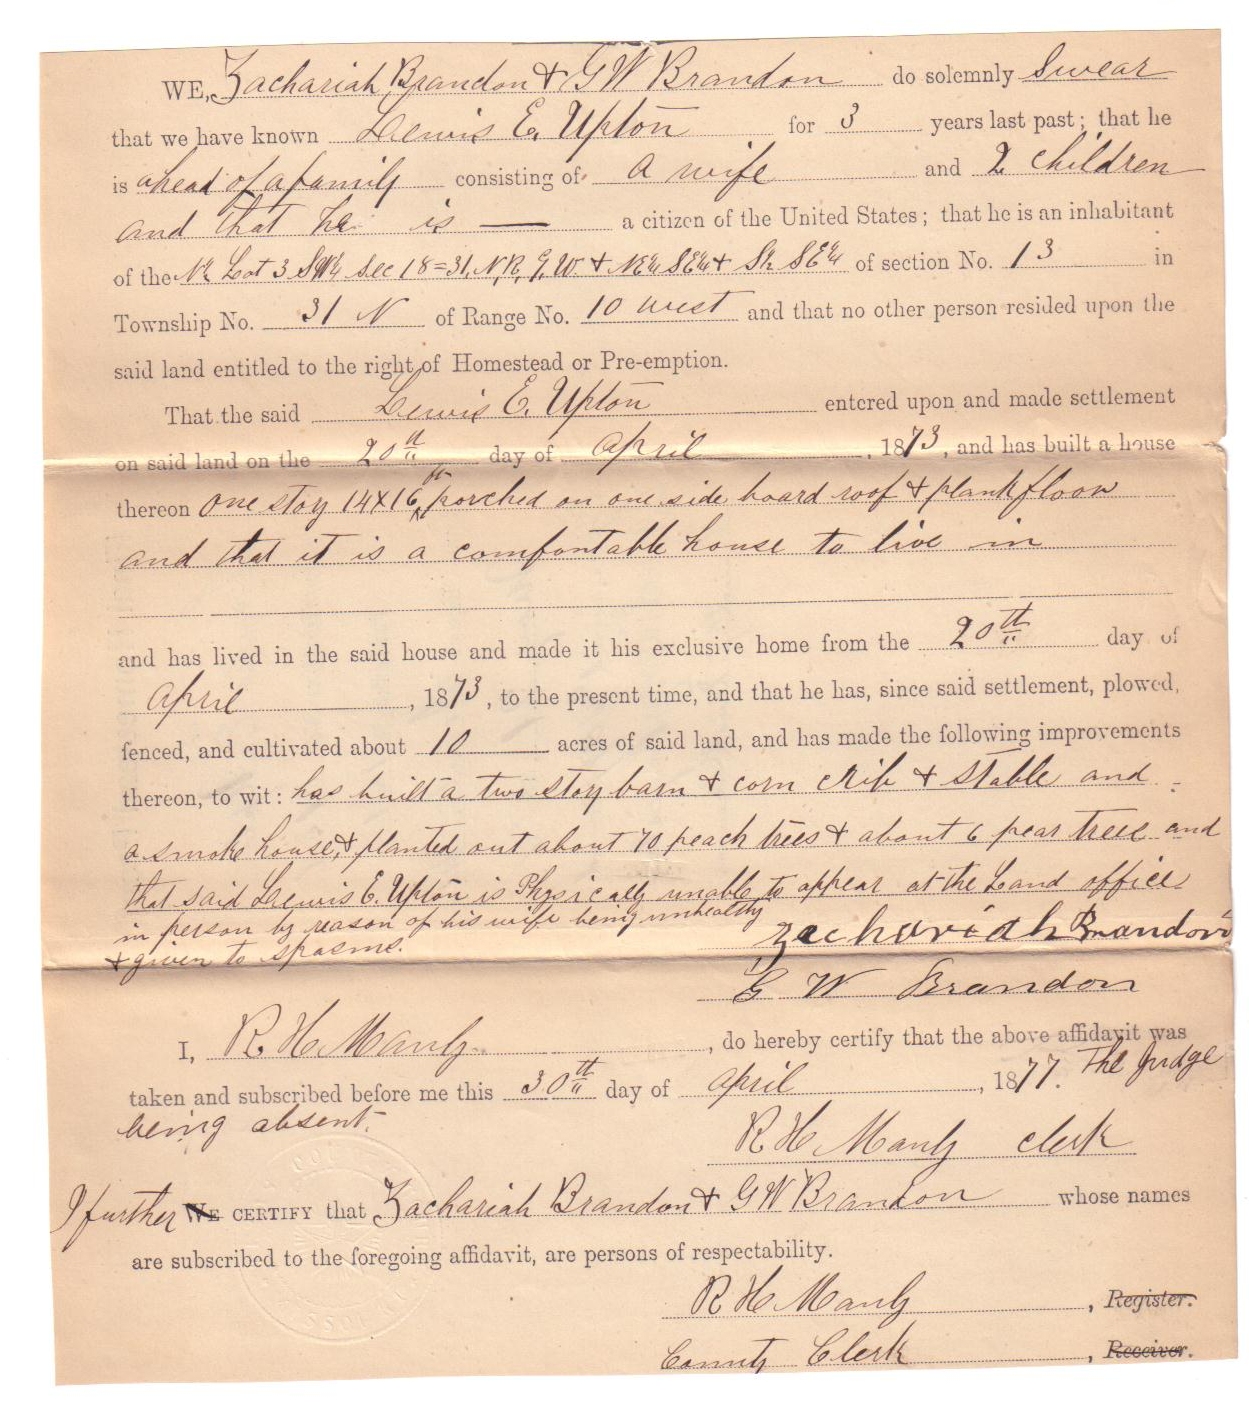 WE, Zachariah Brandon & G W Brandon do solemnly Swear
that we have known Lewis E. Upton for 3 years last past; that he
is ahead of a family consisting of a wife and 2 children
and that he is — a citizen of the United States; that he is an inhabitant
of the N½ Lot 3 SW¼ Sec 18=31, N, R, 9, W. & NE¼ SE¼ & S½ SE¼ of section No. 13 in
Township No. 31 N of Range No. 10 west and that no other person resided upon the
said land entitled to the right of Homestead or Pre-emption.
That the said Lewis E. Upton entered upon and made settlement
on said land on the 20th day of April, 1873, and has built a house
thereon one story 14x16 ft porched on one side board roof & plank floor
and that it is a comfortable house to live in
and has lived in the said house and made it his exclusive home from the 20th day of
April, 1873, to the present time, and that he has, since said settlement, plowed,
fenced, and cultivated about 10 acres of said land, and has made the following improvements
thereon, to wit: has built a two story barn & corn crib & stable and
a smoke house, & planted out about 70 peach trees & about 6 pear trees and
that said Lewis E. Upton is Physically unable to appear at the Land office
in person by reason of his wife being unhealthy
& given to spasms.
Zachariah Brandon
G W Brandon
I, R H Manly, do hereby certify that the above affidavit was
taken and subscribed before me this 30th day of April, 1877. The Judge
being absent.
R H Manly Clerk
I further WE CERTIFY that Zachariah Brandon & G W Brandon whose names
are subscribed to the foregoing affidavit, are persons of respectability.
R H Manly, Register.
County Clerk, Receiver.